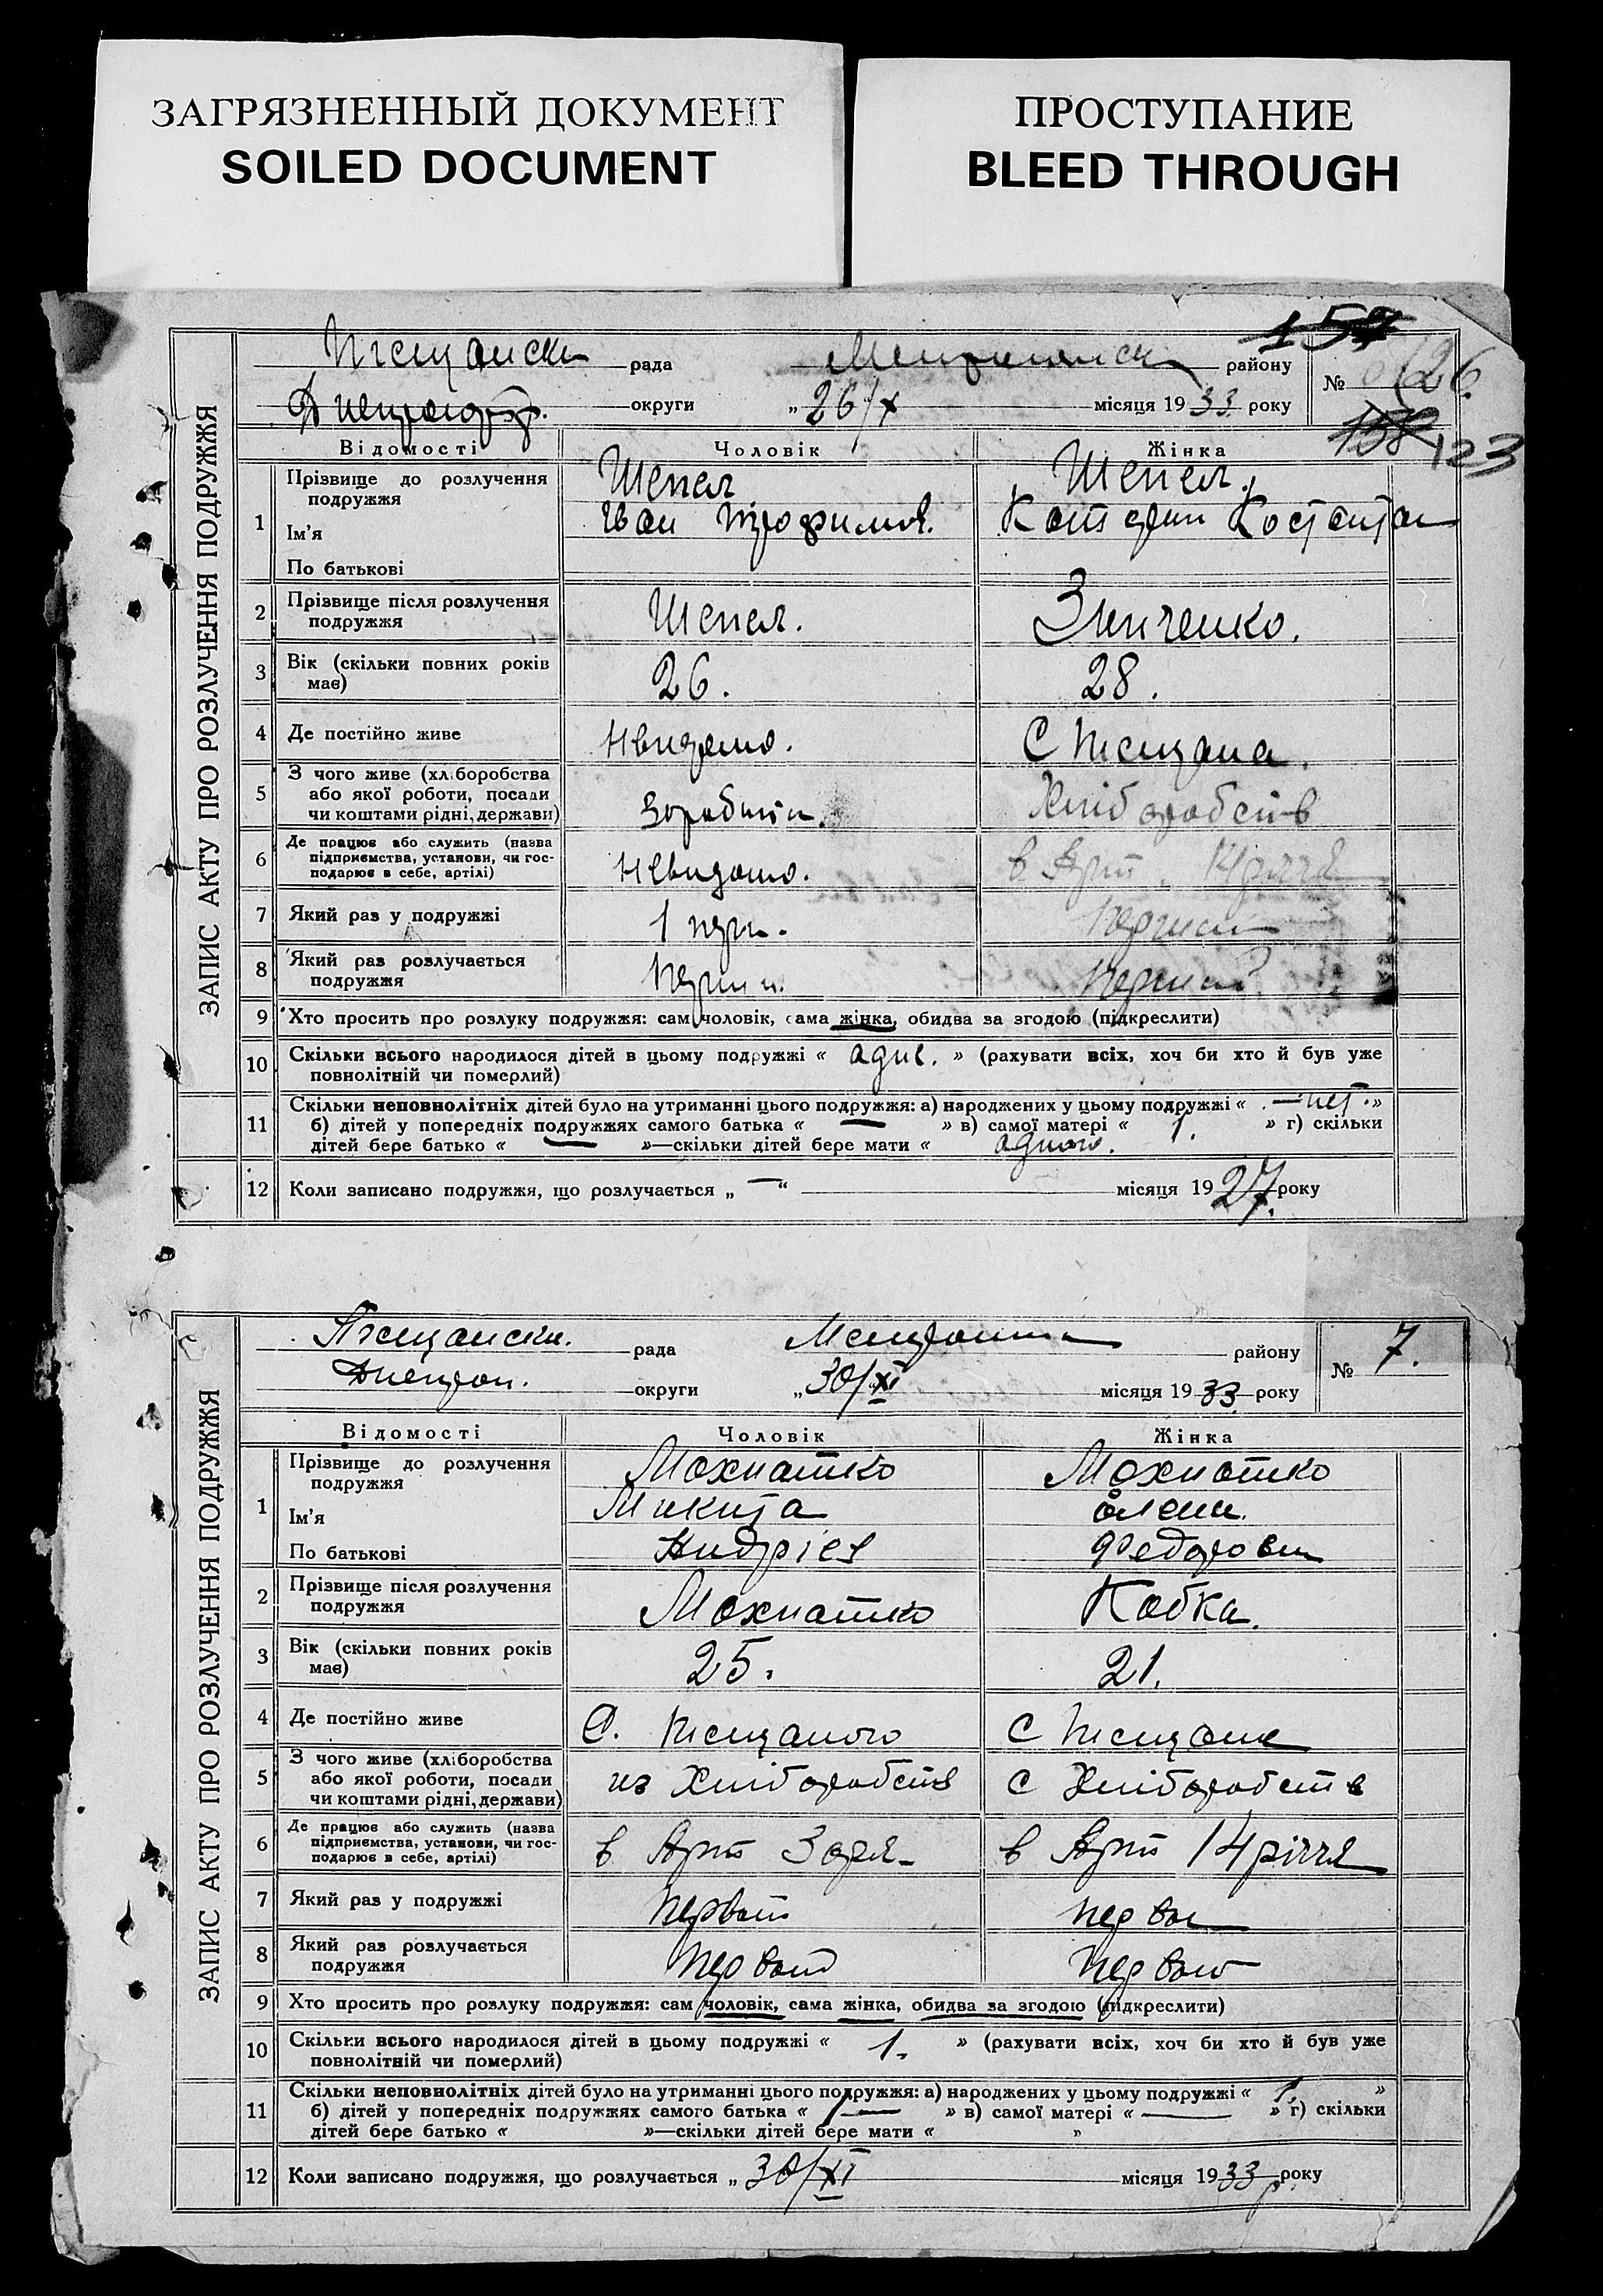 ЗАГРЯЗНЕННЫЙ ДОКУМЕНТ
SOILED DOCUMENT
ПРОСТУПАНИЕ
BLEED THROUGH
ЗАПИС АКТУ ПРО РОЗЛУЧЕННЯ ПОДРУЖЖЯ
рада району № 26.
округи „26/X місяця 1933 року
123
Відомості Чоловік Жінка
1 Прізвище до розлучення подружжя Шепел Шепел.
Ім'я Іван Трофимов.
По батькові
2 Прізвище після розлучення подружжя Шепел. Зинченко.
3 Вік (скільки повних років має) 26. 28.
4 Де постійно живе Невидомо. С Піщана.
5 З чого живе (хліборобства або якої роботи, посади чи коштами рідні, держави) Хліборобств
6 Де працює або служить (назва підприємства, установи, чи господарює в себе, артілі) Невидомо. в Арт. 14річчя
7 Який раз у подружжі 1 перш.
8 Який раз розлучається подружжя
9 Хто просить про розлуку подружжя: сам чоловік, сама жінка, обидва за згодою (підкреслити)
10 Скільки всього народилося дітей в цьому подружжі « адне. » (рахувати всіх, хоч би хто й був уже
повнолітній чи померлий)
11 Скільки неповнолітніх дітей було на утриманні цього подружжя: а) народжених у цьому подружжі « — нет. »
б) дітей у попередніх подружжях самого батька « — » в) самої матері « 1. » г) скільки
дітей бере батько « — »—скільки дітей бере мати « одного.
12 Коли записано подружжя, що розлучається „ — “ місяця 1927. року
ЗАПИС АКТУ ПРО РОЗЛУЧЕННЯ ПОДРУЖЖЯ
рада району № 7.
округи „30/XI місяця 1933 року
Відомості Чоловік Жінка
1 Прізвище до розлучення подружжя Мохнатко Мохнатко
Ім'я Микита Олена.
По батькові Андріев Федоровн
2 Прізвище після розлучення подружжя Мохнатко Кобка.
3 Вік (скільки повних років має) 25. 21.
4 Де постійно живе С. Піщаного С Піщане
5 З чого живе (хліборобства або якої роботи, посади чи коштами рідні, держави) из Хліборобств с Хліборобств
6 Де працює або служить (назва підприємства, установи, чи господарює в себе, артілі) в Арт Зоря в Арт 14річчя
7 Який раз у подружжі
8 Який раз розлучається подружжя
9 Хто просить про розлуку подружжя: сам чоловік, сама жінка, обидва за згодою (підкреслити)
10 Скільки всього народилося дітей в цьому подружжі « 1. » (рахувати всіх, хоч би хто й був уже
повнолітній чи померлий)
11 Скільки неповнолітніх дітей було на утриманні цього подружжя: а) народжених у цьому подружжі « 1. »
б) дітей у попередніх подружжях самого батька « — » в) самої матері « — » г) скільки
дітей бере батько « »—скільки дітей бере мати « »
12 Коли записано подружжя, що розлучається „ 30/XI місяця 1933 року